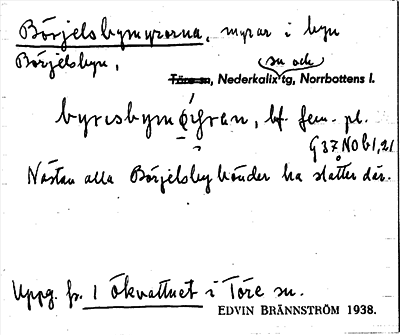 Börjelsbymyrorna, myrar i byn
Börjelsbyn,
sn och
Töre sn, Nederkalix tg, Norrbottens l.
bf. fem. pl.
G 37 N0 b 1,21
Nästan alla Börjelsbybönder ha slåtter där.
Uppg. fr. 1 Ökvattnet i Töre sn.
EDVIN BRÄNNSTRÖM 1938.